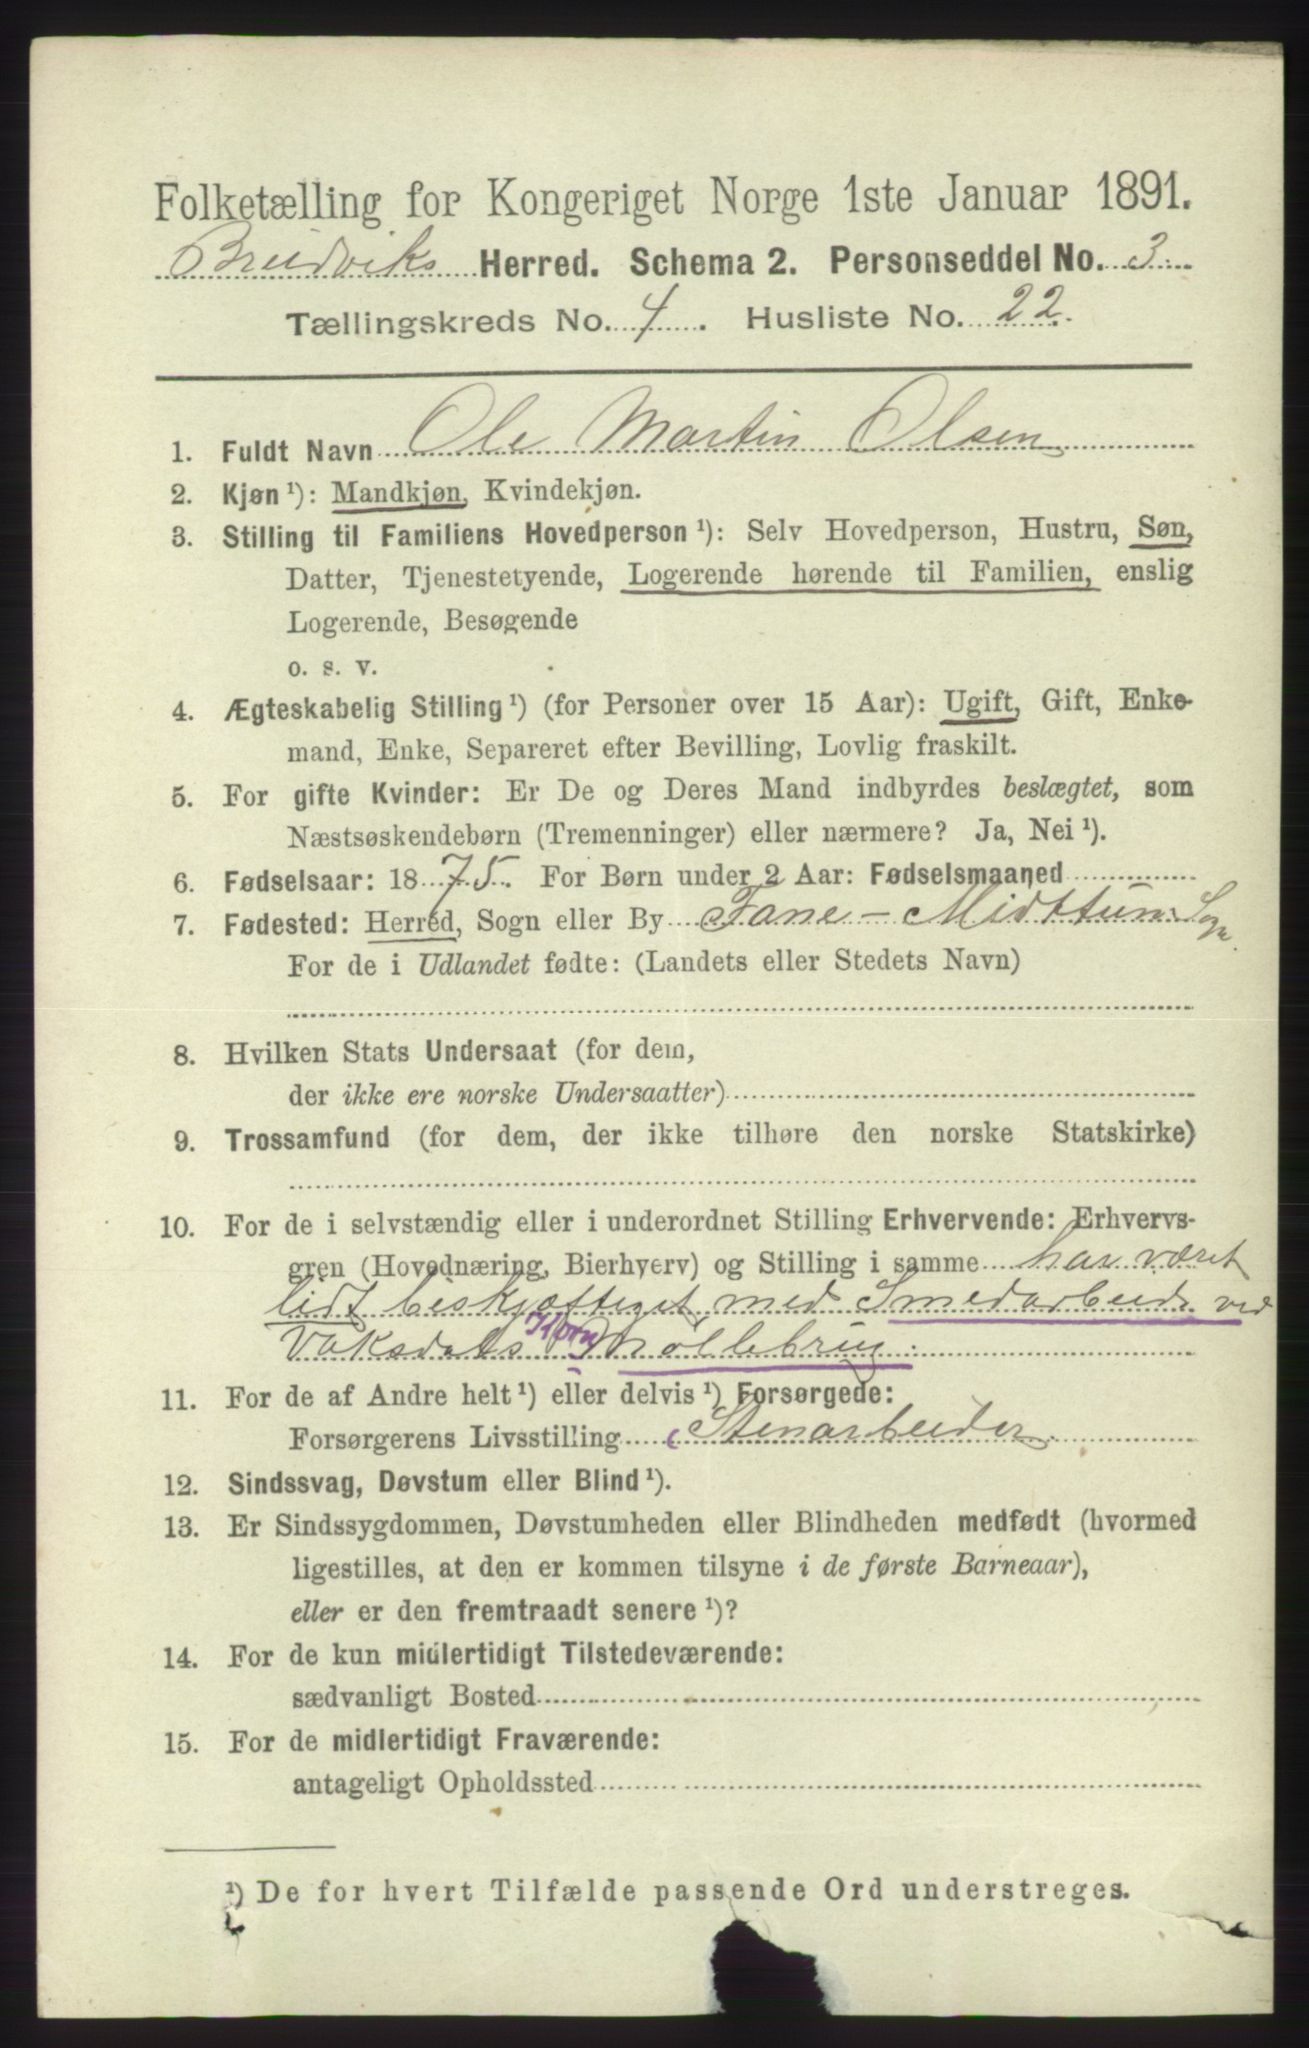 Folketælling for Kongeriget Norge 1ste Januar 1891.
Breidviks Herred. Schema 2. Personseddel No. 3.
Tællingskreds No. 4. Husliste No. 22.
1. Fuldt Navn Ole Martin Olsen
2. Kjøn ¹): Mandkjøn, Kvindekjøn.
3. Stilling til Familiens Hovedperson ¹): Selv Hovedperson, Hustru, Søn,
Datter, Tjenestetyende, Logerende hørende til Familien, enslig
Logerende, Besøgende
o. s. v.
4. Ægteskabelig Stilling ¹) (for Personer over 15 Aar): Ugift, Gift, Enke-
mand, Enke, Separeret efter Bevilling, Lovlig fraskilt.
5. For gifte Kvinder: Er De og Deres Mand indbyrdes beslægtet, som
Næstsøskendebørn (Tremenninger) eller nærmere? Ja, Nei ¹).
6. Fødselsaar: 1875. For Børn under 2 Aar: Fødselsmaaned
7. Fødested: Herred, Sogn eller By Fane - Midttun Sogn.
For de i Udlandet fødte: (Landets eller Stedets Navn)
8. Hvilken Stats Undersaat (for dem,
der ikke ere norske Undersaatter)
9. Trossamfund (for dem, der ikke tilhøre den norske Statskirke)
10. For de i selvstændig eller i underordnet Stilling Erhvervende: Erhvervs-
gren (Hovednæring, Bierhverv) og Stilling i samme har været
lidt beskjæftiget med Smedarbeide ved
Vaksdals Korn Møllebrug.
11. For de af Andre helt ¹) eller delvis ¹) Forsørgede:
Forsørgerens Livsstilling Stenarbeider
12. Sindssvag, Døvstum eller Blind ¹).
13. Er Sindssygdommen, Døvstumheden eller Blindheden medfødt (hvormed
ligestilles, at den er kommen tilsyne i de første Barneaar),
eller er den fremtraadt senere ¹)?
14. For de kun midlertidigt Tilstedeværende:
sædvanligt Bosted
15. For de midlertidigt Fraværende:
antageligt Opholdssted
¹) De for hvert Tilfælde passende Ord understreges.